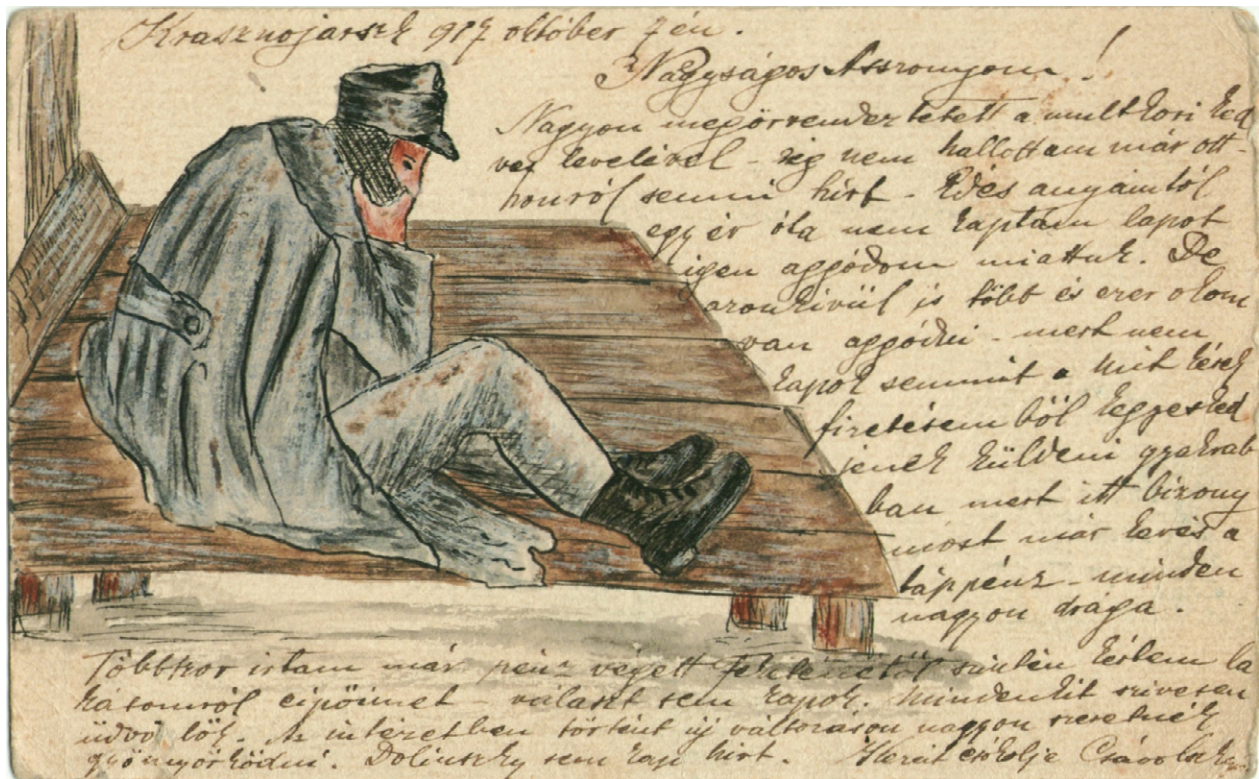 Krasznojarszk 917 október 7 én.
Nagyságos Asszonyom!
Nagyon megörvendeztetett a multkori ked
ves levelével – rég nem hallottam már ott-
honról semmi hirt – Édes anyámtól
egy év óta nem kaptam lapot
igen aggódom miattuk. De
azonkivül is több és ezer okom
van aggódni – mert nem
kapok semmit
fizetésemből kegyesked
jenek küldeni gyakrab
ban mert itt bizony
most már kevés a
táppénz – minden
nagyon drága.
Többször irtam már pénz végett szintén kértem la
kásomról cipőimet – választ sem kapok. Mindenkit szivesen
üdvözlök. Az intézetben történt uj változáson nagyon szeretnék
gyönyörködni. Dolinszky sem kap hirt. Kezeit csókolja